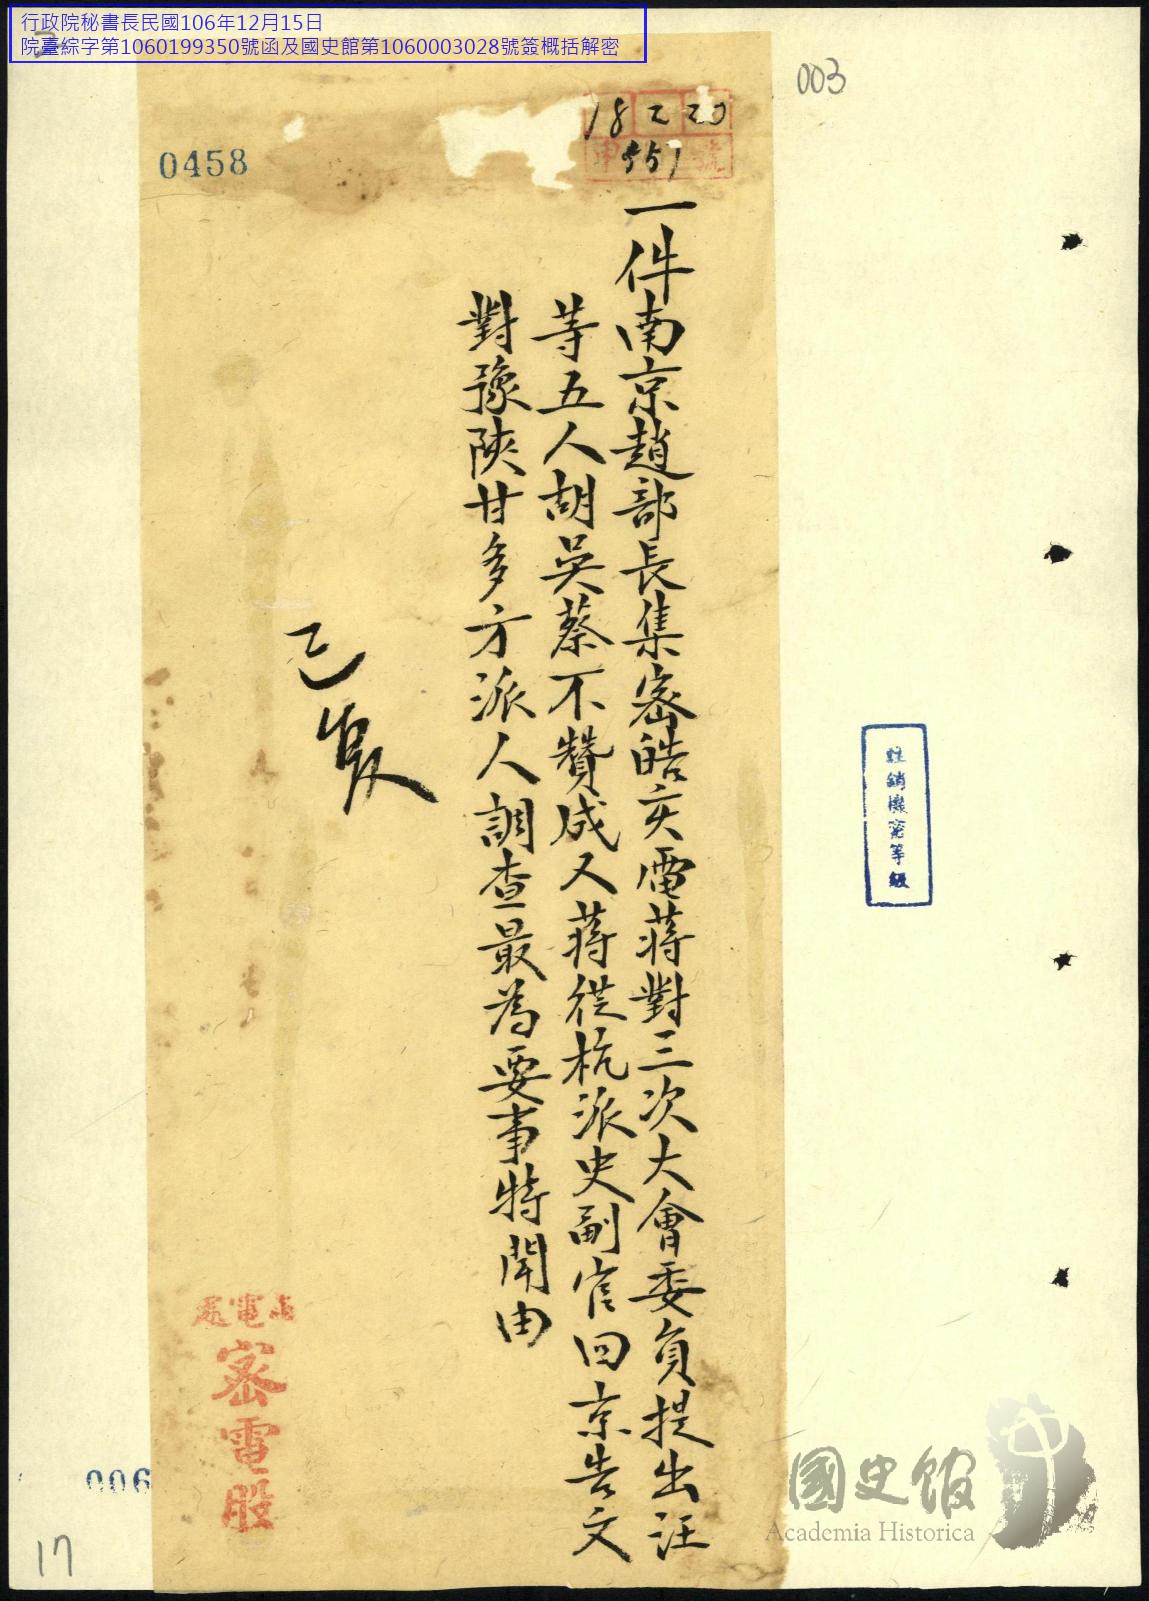 行政院秘書長民國106年12月15日
院臺綜字第1060199350號函及國史館第1060003028號簽概括解密
003
18 2 20
551 號
0458
一件南京趙部長集密皓亥電蔣對三次大會委員提出汪
等五人胡吳蔡不贊成又蔣從杭派史副官回京告文
對豫陝甘多方派人調查最為要事特聞由
已
註銷機密等級
電處
密電股
006
17
國史館
Academia Historica